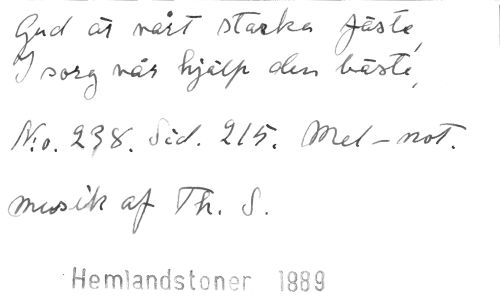 Gud är vårt starka fäste,
I sorg vår hjälp den bäste,
N:o. 238. Sid. 215. Mel-not.
musik af Th. S.
Hemlandstoner 1889